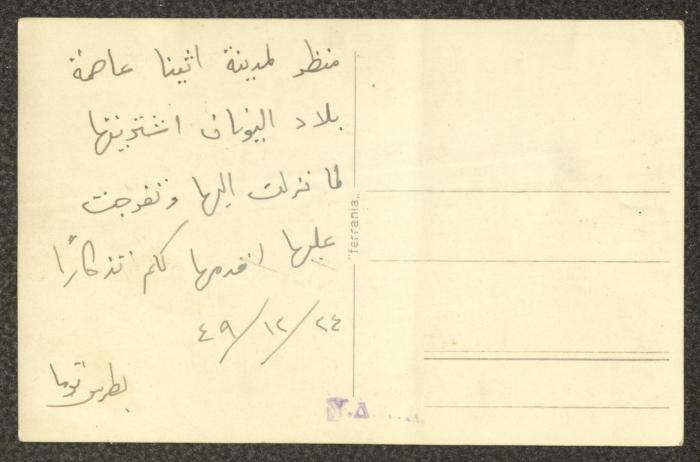 منظر لمدينة اثينا عاصمة
بلاد اليونان اشتريتها
لما نزلت اليها وتفرجت
عليها اقدمها لكم تذكارًا
٢٤/١٢/٤٩
بطرس توما
"ferrania"